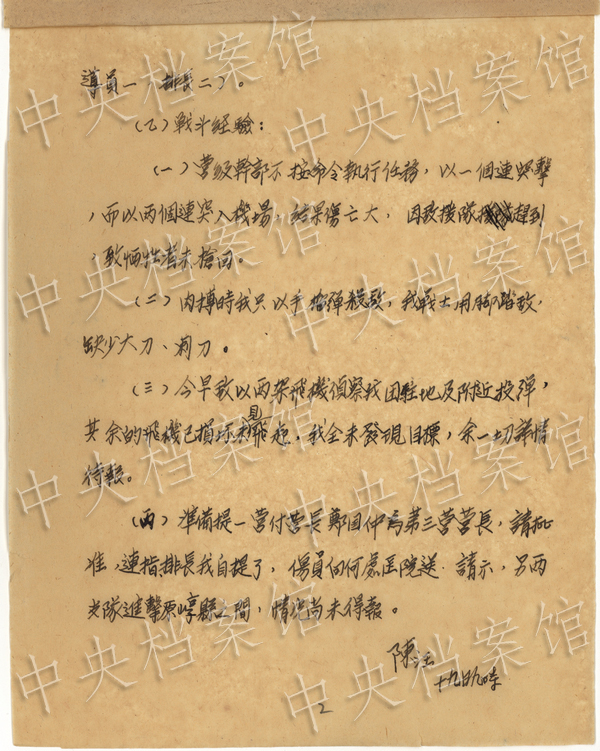 導員一、排長二）。
（乙）戰斗經驗：
（一）營級幹部不按命令執行任務，以一個連突擊
，而以兩個連突入機場，結果傷亡大，因敌援隊趕到
，致牺牲者未搶回。
（二）肉搏時我只以手榴彈殺敌，我戰士用脚踏敌，
缺少大刀、刺刀。
（三）今早敌以兩架飛機偵察我团駐地及附近投弹，
其余的飛機已損坏未見飛起，我全未發現目標，余一切詳情
待報。
（丙）准備提一營付營長鄭国仲為第三營營長，請批
准，連指排長我自提了，傷員向何處医院送，請示，另两
隊進擊原崞縣之間，情况尚未得報。
陳
十九日九时
2
中央档案馆